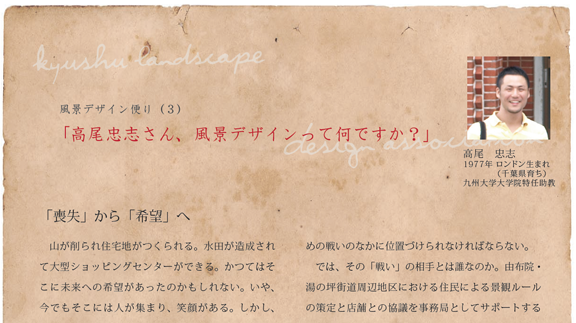 kyushu landscape
風景デザイン便り（3）
「高尾忠志さん、風景デザインって何ですか？」
design association
高尾　忠志
1977年 ロンドン生まれ
（千葉県育ち）
九州大学大学院特任助教
「喪失」から「希望」へ
山が削られ住宅地がつくられる。水田が造成され
て大型ショッピングセンターができる。かつてはそ
こに未来への希望があったのかもしれない。いや、
今でもそこには人が集まり、笑顔がある。しかし、
めの戦いのなかに位置づけられなければならない。
では、その「戦い」の相手とは誰なのか。由布院・
湯の坪街道周辺地区における住民による景観ルール
の策定と店舗との協議を事務局としてサポートする